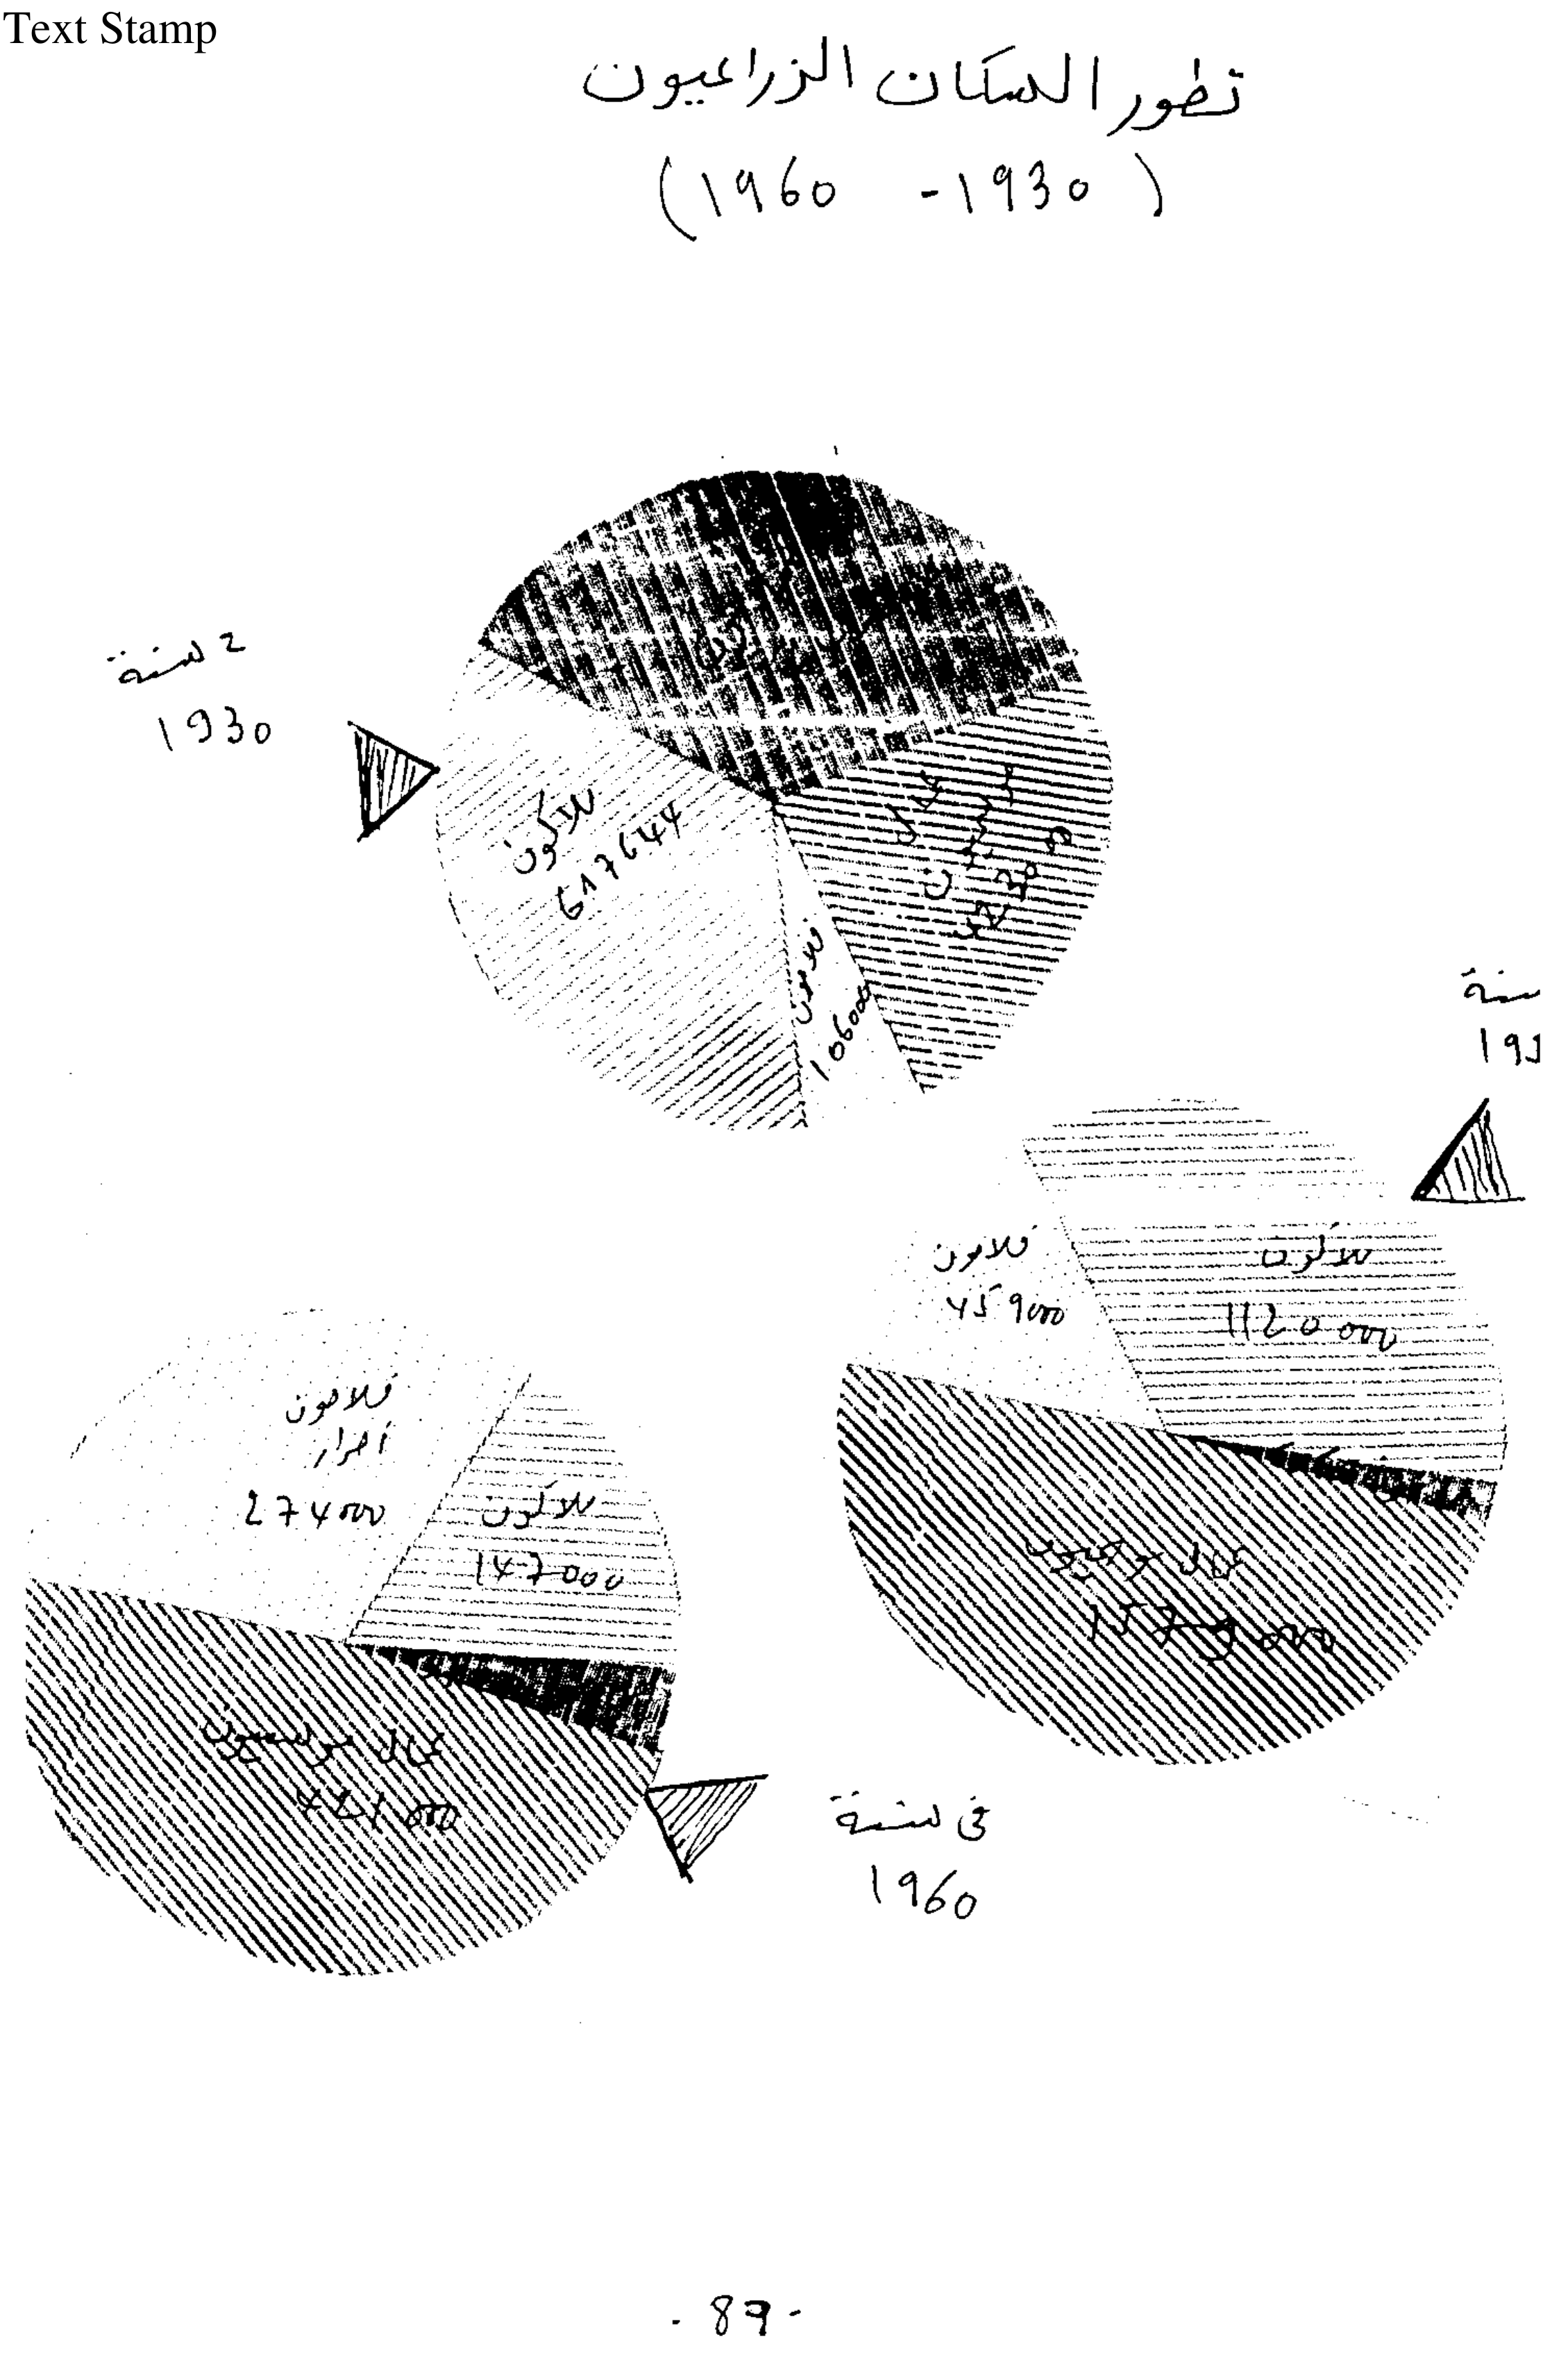 Text Stamp
تطور السكان الزراعيون
(1930 - 1960)
سنة
1930
ملاكون
617644
فلاحون
106000
عمال
سنة
فلاحون
459000
ملاكون
1120000
عمال موسميون
1579000
فلاحون
أحرار
274000
ملاكون
147000
عمال موسميون
421000
في سنة
1960
- 89 -